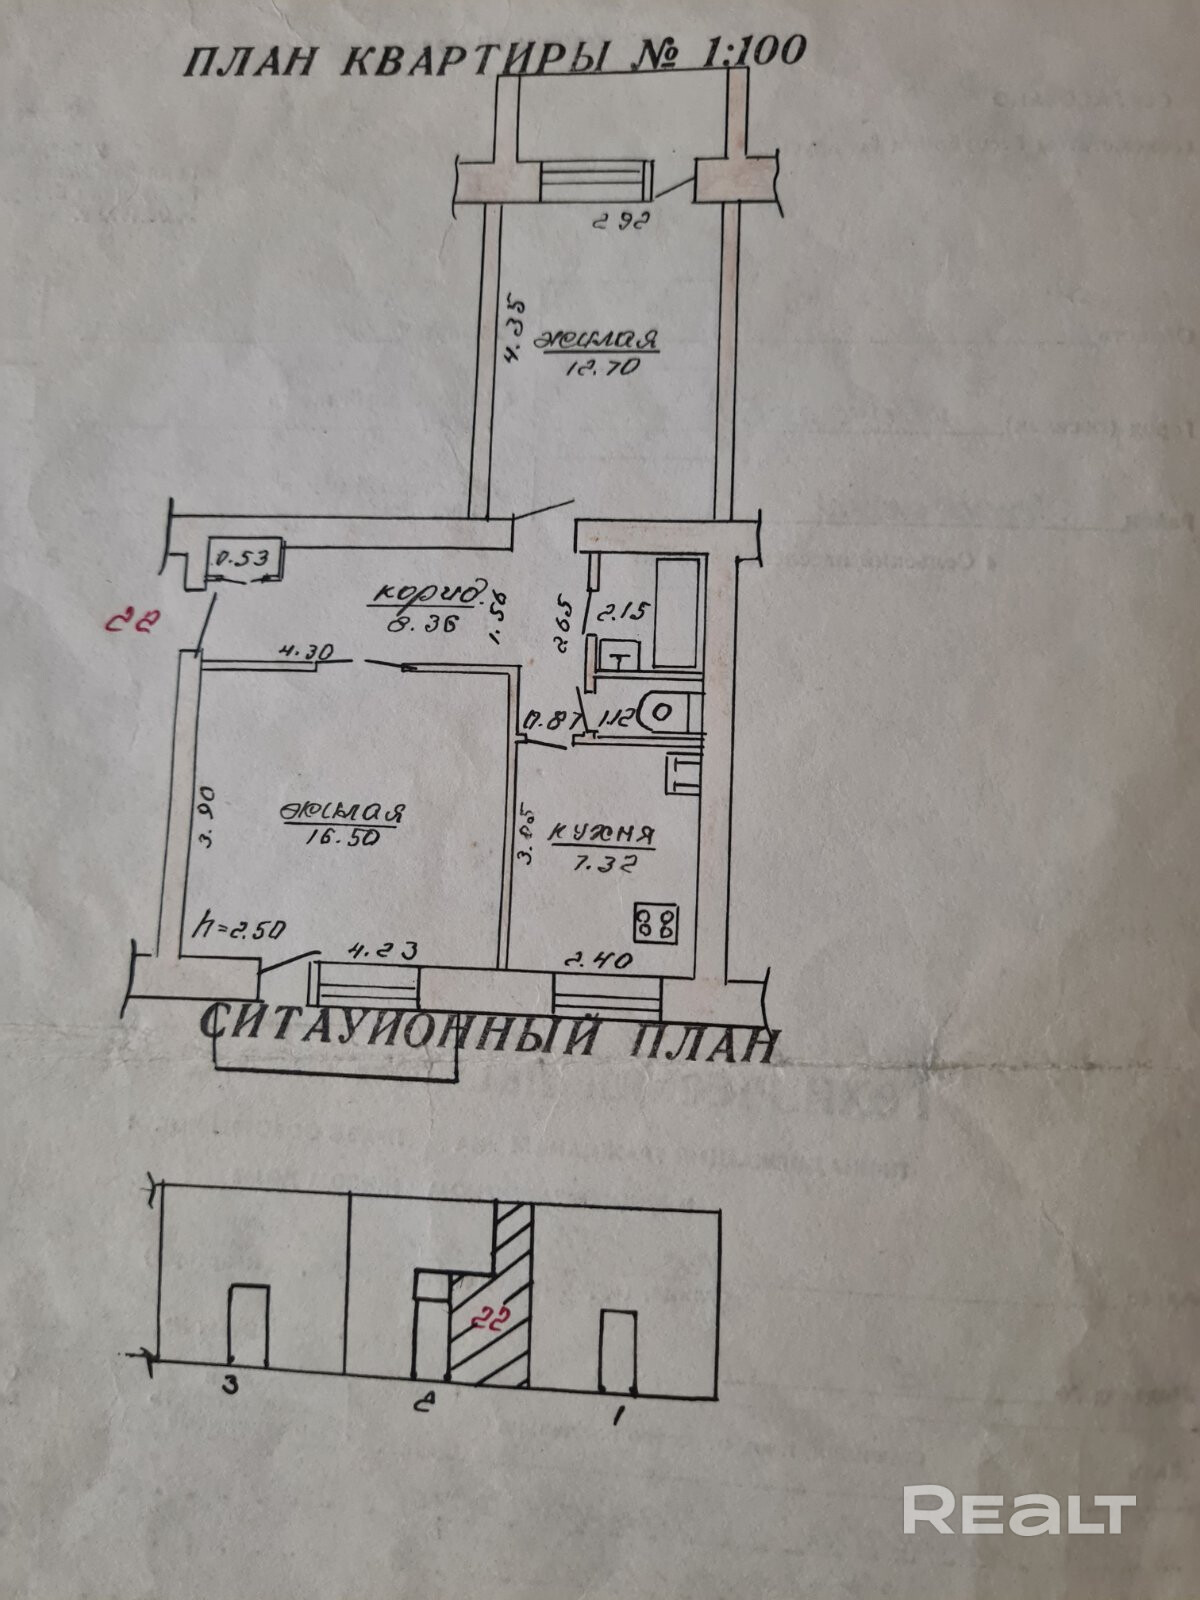 ПЛАН КВАРТИРЫ № 1:100
2.92
4.35
жилая
12.70
0.53
корид.
8.36
1.56
2.65
2.15
22
4.30
0.87
1.12
3.90
жилая
16.50
3.05
кухня
7.32
h=2.50
4.23
2.40
СИТАУИОННЫЙ ПЛАН
22
3
2
1
REALT